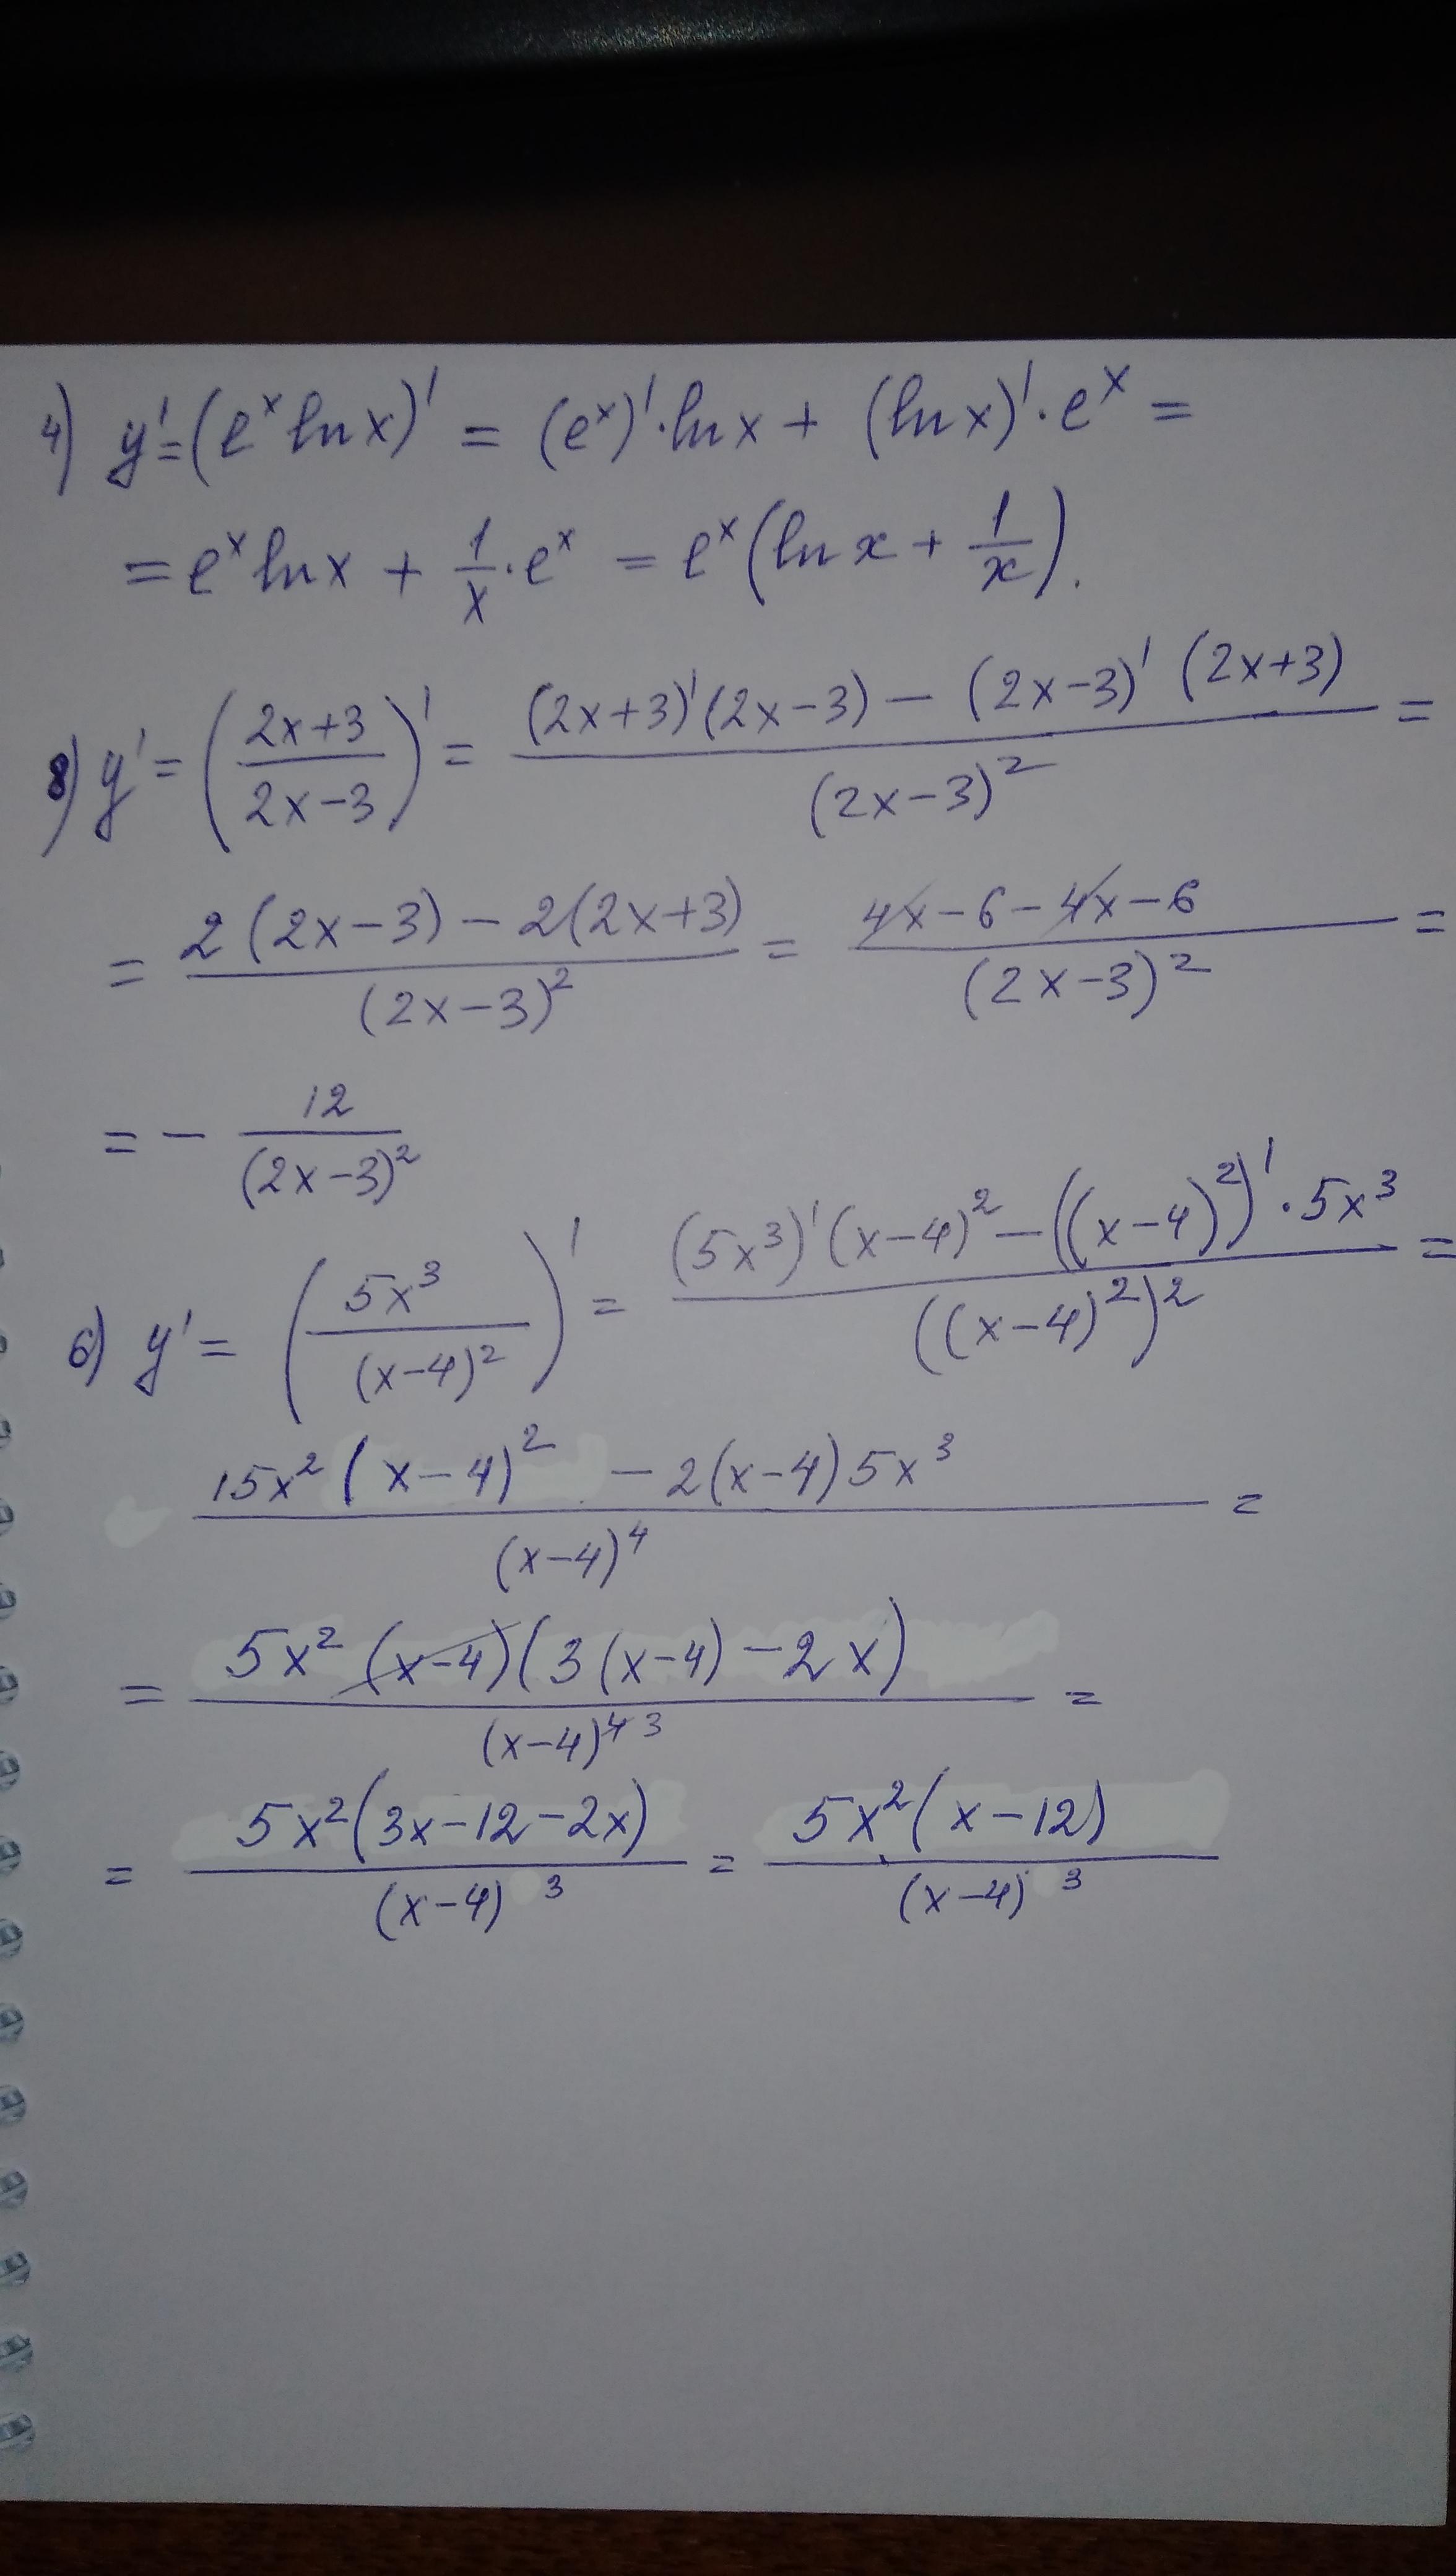 4) y'=(eˣ ln x)' = (eˣ)'·ln x + (ln x)'·eˣ =
= eˣ ln x + 1/x · eˣ = eˣ(ln x + 1/x).
8) y' = ((2x+3)/(2x-3))' = ((2x+3)'(2x-3) - (2x-3)' (2x+3))/(2x-3)² =
= (2(2x-3) - 2(2x+3))/(2x-3)² = (4x-6-4x-6)/(2x-3)² =
= - 12/(2x-3)²
6) y' = (5x³/(x-4)²)' = ((5x³)'(x-4)² - ((x-4)²)'·5x³)/((x-4)²)² =
(15x²(x-4)² - 2(x-4)5x³)/(x-4)⁴ =
= (5x²(x-4)(3(x-4)-2x))/(x-4)⁴ ³ =
= (5x²(3x-12-2x))/(x-4)³ = (5x²(x-12))/(x-4)³